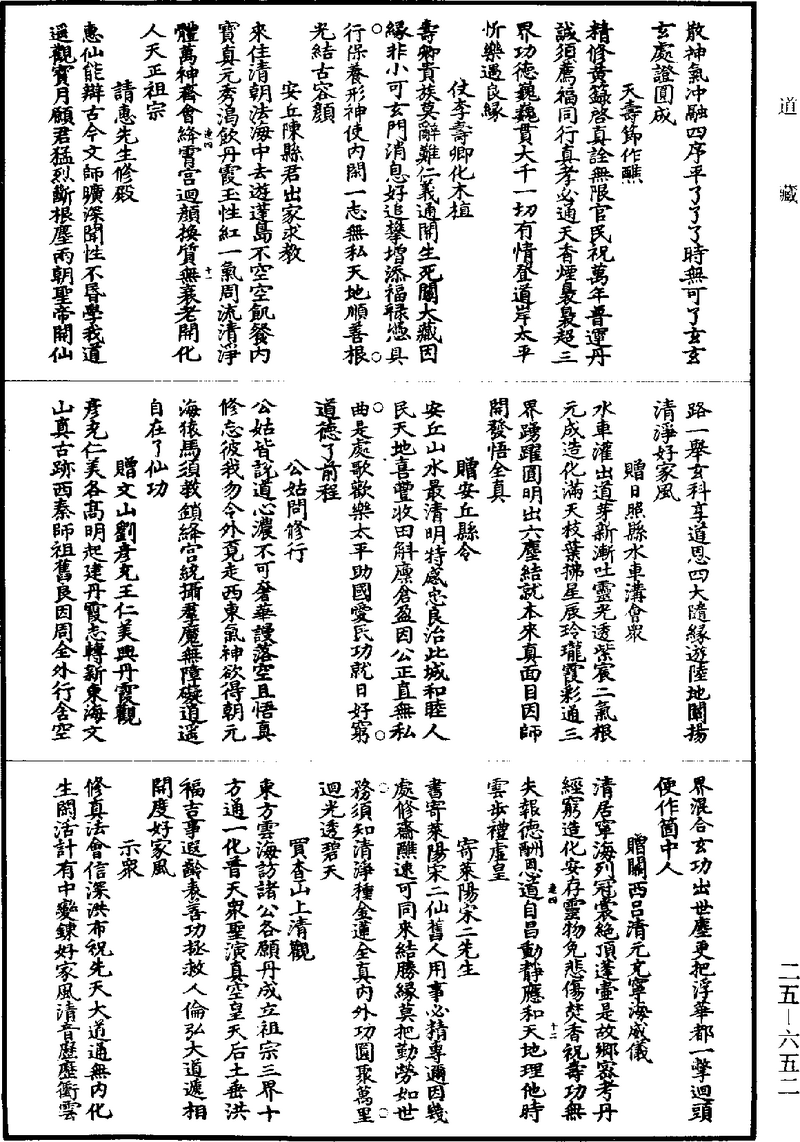 道藏
散神氣冲融四序平了了了時無可了玄玄
玄處證圓成
天壽節作醮
精修黃籙啓真詮無限官民祝萬年普運丹
誠須薦福同行真孝必通天香煙裊裊超三
界功德巍巍貫大千一切有情登道岸太平
忻樂遇良緣
使李壽卿化木植
壽卿貴族莫辭難仁義通開生死關大藏因
緣非小可玄門消息好追攀增添福祿憑具
行保養形神使內閑一志無私天地順善根
光結古容顏
安丘陳縣君出家求教
來住清朝法海中去遊蓬島不空空飢餐內
寶真元秀渴飲丹霞玉性紅一氣周流清淨
體萬神齊會絳霄宮迴顏換質無衰老開化
人天正祖宗
請惠先生修殿
惠仙能辯古今文師曠深聞性不昏學我道
遥觀寳月願君猛烈斷根塵兩朝聖帝開仙
路一舉玄科享道恩四大隨緣遊陸地闡揚
清淨好家風
贈日照縣水車溝會衆
水車灌出道芽新漸吐靈光透紫宸二氣根
元成造化滿天枝葉拂星辰玲瓏霞彩通三
界踴躍圓明出六塵結就本來真面目因師
開發悟全真
贈安丘縣令
安丘山水最清明特感忠良治此城和睦人
民天地喜豐收田斛廩倉盈因公正直無私
曲是處歌歡樂太平助國愛民功就日好窮
道德了前程
公姑問修行
公姑皆說道心濃不可奢華謾落空且悟真
修忘彼我勿令外覓走西東氣神欲得朝元
海猿馬須教鎖絳宮統攝羣魔無障礙逍遥
自在了仙功
贈文山劉彥充王仁美興丹霞觀
彥充仁美各高明起建丹霞志轉新東海文
山真古跡西秦師祖舊良因周全外行舍空
界混合玄功出世塵更把浮華都一擎迴頭
便作箇中人
贈關西呂清元充寧海威儀
清居寧海列冠裳絕頂蓬壺是故鄉密考丹
經窮造化安存靈物免悲傷焚香祝壽功無
失報德酬恩道自昌動静應和天地理他時
雲步禮虛皇
寄萊陽宋二先生
書寄萊陽宋二仙舊人用事必精專邇因幾
處修齋醮速可同來結勝緣莫把勤勞如世
務須知清淨種金蓮全真內外功圓聚萬里
迴光透碧天
賈查山上清觀
東方雲海訪諸公各願丹成立祖宗三界十
方通一化普天衆聖演真空皇天后土垂洪
福吉事遐齡表善功拯救人倫弘大道遞相
開度好家風
示衆
修真法會信深洪布祝先天大道通無內化
生闊活計有中變鍊好家風清音歷歷衝雲
二五—六五二